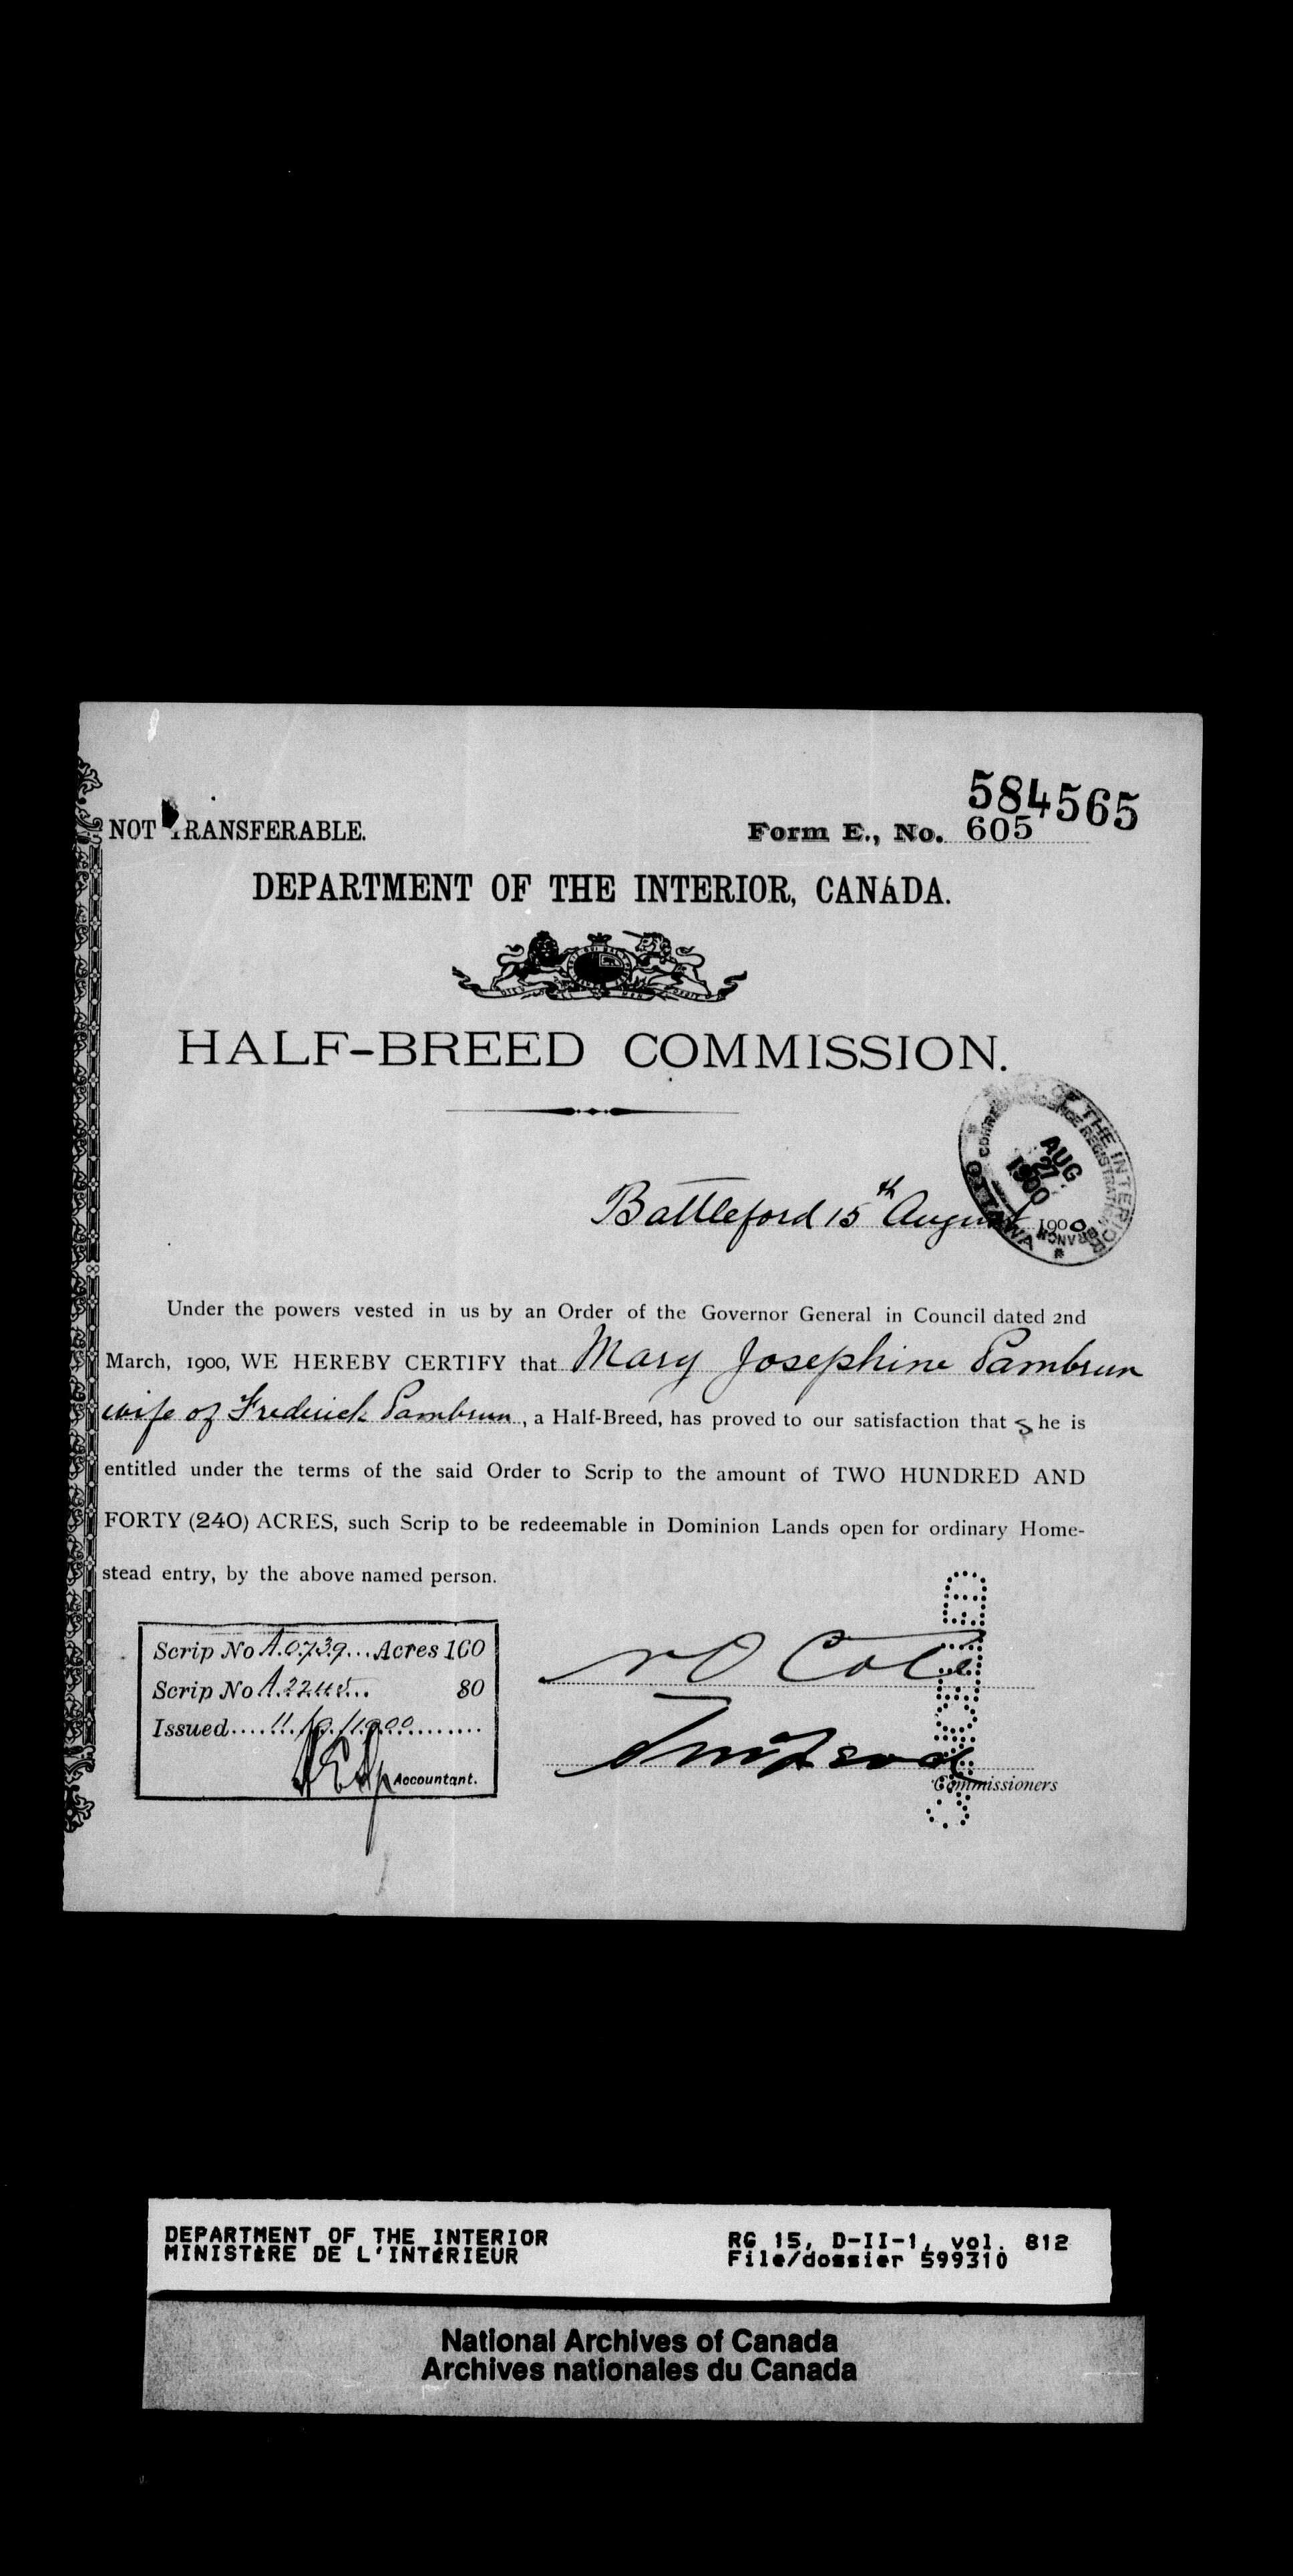 584565
NOT TRANSFERABLE.
Form E., No. 605
DEPARTMENT OF THE INTERIOR, CANADA.
HALF-BREED COMMISSION.
OF THE INTERIOR
AUG
27
1900
OTTAWA
Battleford 15th August 1900
Under the powers vested in us by an Order of the Governor General in Council dated 2nd
March, 1900, WE HEREBY CERTIFY that Mary Josephine Pambrun
wife of Frederick Pambrun, a Half-Breed, has proved to our satisfaction that s he is
entitled under the terms of the said Order to Scrip to the amount of TWO HUNDRED AND
FORTY (240) ACRES, such Scrip to be redeemable in Dominion Lands open for ordinary Home-
stead entry, by the above named person.
Scrip No A.0739 Acres 160
Scrip No A. 80
Issued 11/9/1900
Accountant.
Cote
Commissioners
DEPARTMENT OF THE INTERIOR
MINISTÈRE DE L'INTÉRIEUR
RG 15, D-II-1, vol. 812
File/dossier 599310
National Archives of Canada
Archives nationales du Canada